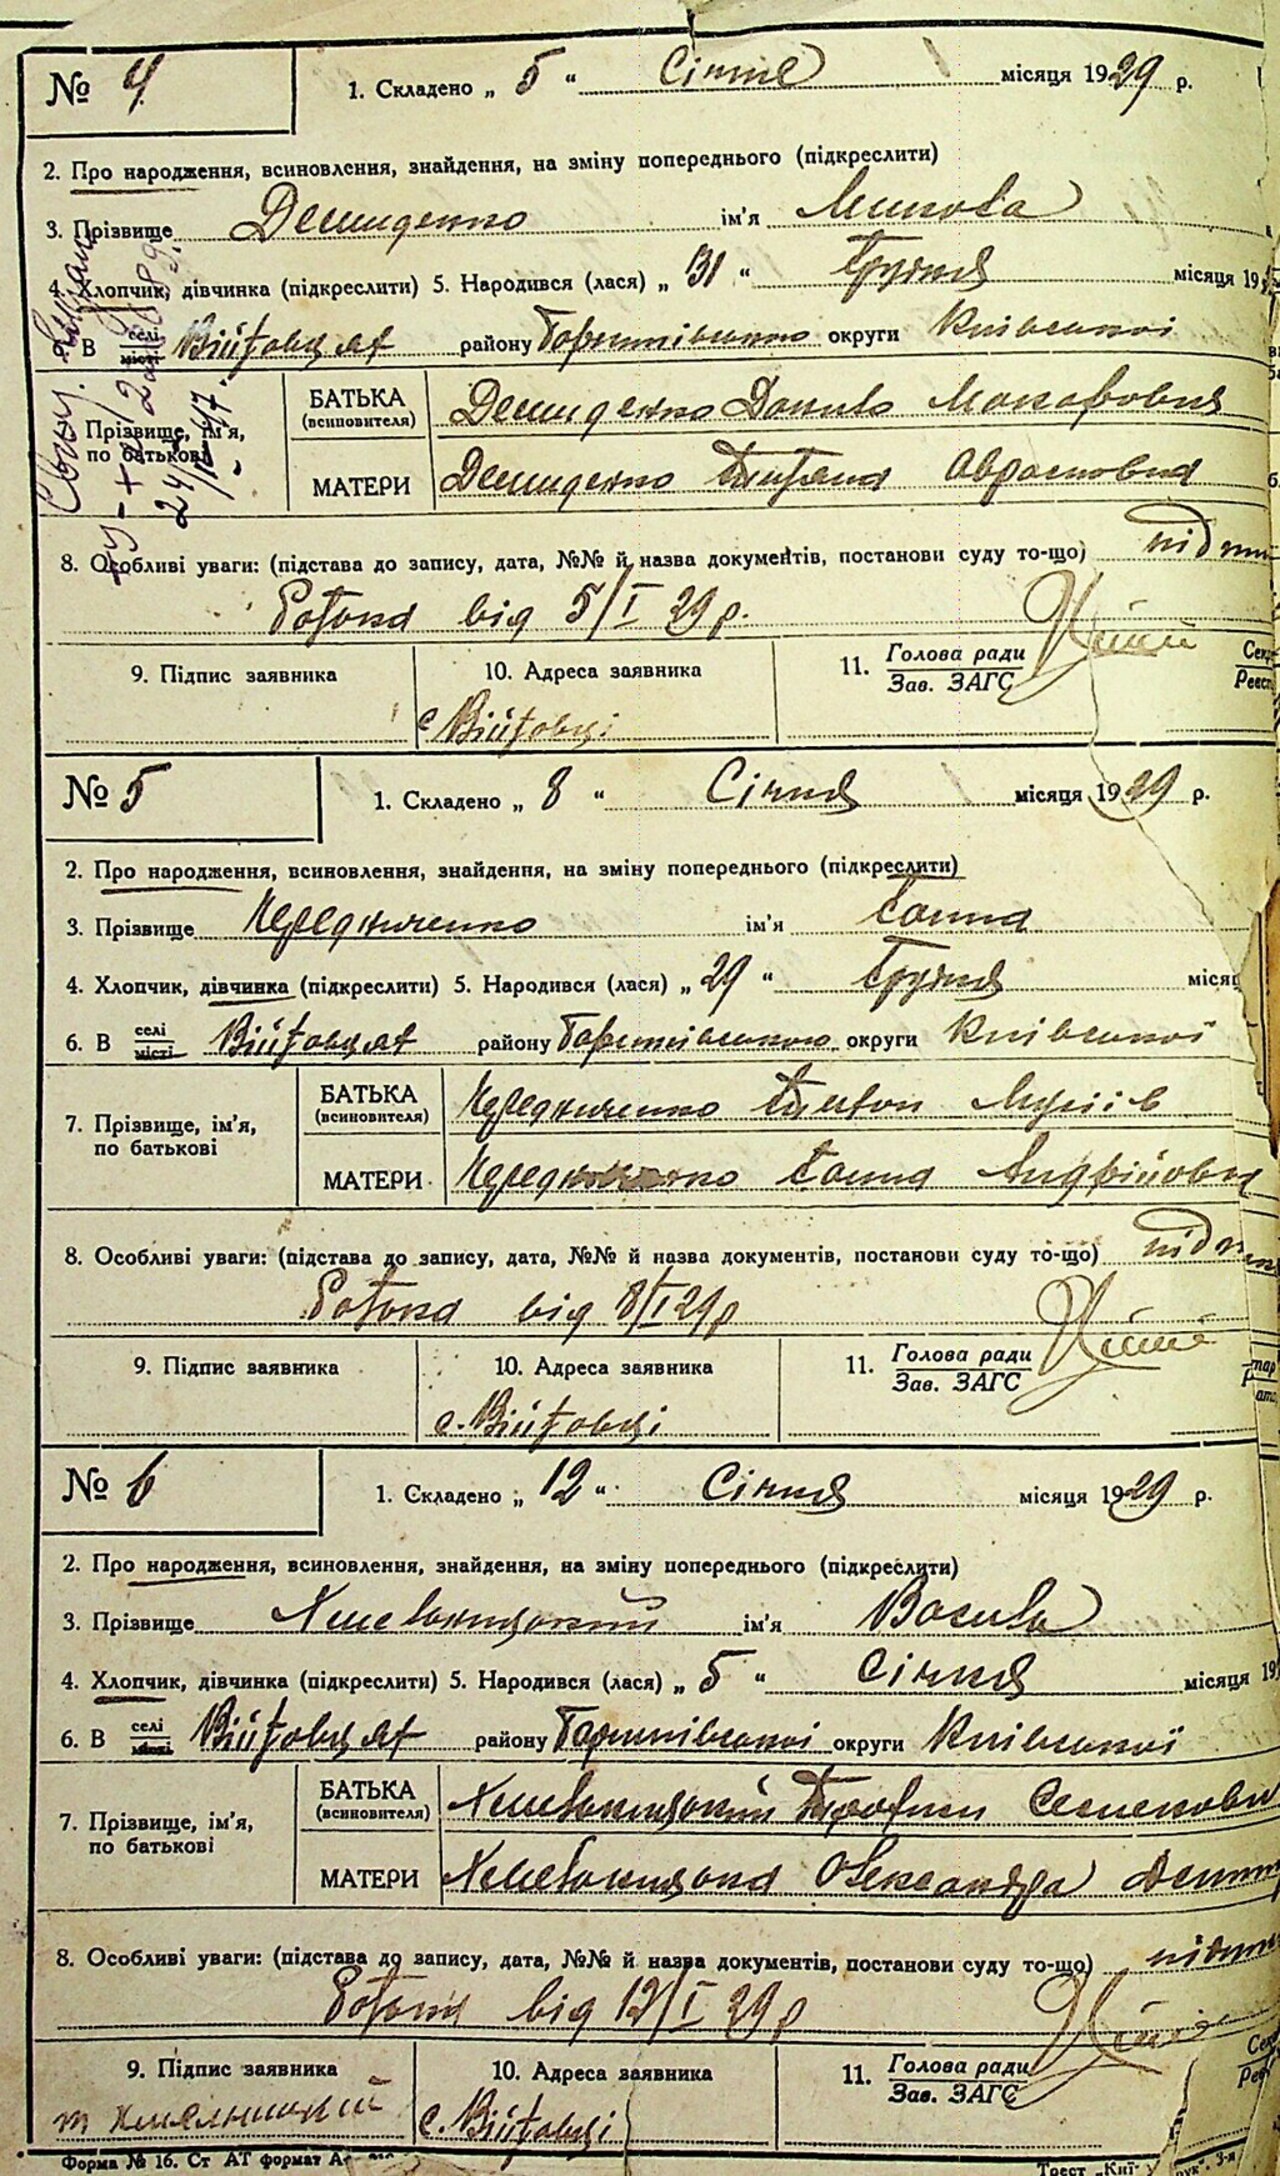 № 4
1. Складено „ 5 “ Січня місяця 1929 р.
2. Про народження, всиновлення, знайдення, на зміну попереднього (підкреслити)
3. Прізвище Демиденко ім'я Микола
4. Хлопчик, дівчинка (підкреслити) 5. Народився (лася) „ 31 “ Грудня місяця 19
В селі місті Війтовцях району Баришівського округи Київської
Прізвище, ім'я, по батькові
БАТЬКА (всиновителя) Демиденко Данило Макарович
МАТЕРИ Демиденко Титяна
8. Особливі уваги: (підстава до запису, дата, №№ й назва документів, постанови суду то-що)
від 5/I 29 р.
9. Підпис заявника 10. Адреса заявника 11. Голова ради Зав. ЗАГС
с Війтовці
№ 5
1. Складено „ 8 “ Січня місяця 1929 р.
2. Про народження, всиновлення, знайдення, на зміну попереднього (підкреслити)
3. Прізвище Передниченко ім'я Ганна
4. Хлопчик, дівчинка (підкреслити) 5. Народився (лася) „ 29 “ Грудня місяц
6. В селі місті Війтовцях району Баришівського округи Київської
7. Прізвище, ім'я, по батькові
БАТЬКА (всиновителя) Передниченко
МАТЕРИ Ганна Андріївн
8. Особливі уваги: (підстава до запису, дата, №№ й назва документів, постанови суду то-що)
від 8/I 29 р
9. Підпис заявника 10. Адреса заявника 11. Голова ради Зав. ЗАГС
с. Війтовці
№ 6
1. Складено „ 12 “ Січня місяця 1929 р.
2. Про народження, всиновлення, знайдення, на зміну попереднього (підкреслити)
3. Прізвище ім'я Василь
4. Хлопчик, дівчинка (підкреслити) 5. Народився (лася) „ 5 “ Січня місяця 19
6. В селі місті Війтовцях району Баришівської округи Київської
7. Прізвище, ім'я, по батькові
БАТЬКА (всиновителя) Трофим Семенови
МАТЕРИ Олександра
8. Особливі уваги: (підстава до запису, дата, №№ й назва документів, постанови суду то-що)
від 12/I 29 р
9. Підпис заявника 10. Адреса заявника 11. Голова ради Зав. ЗАГС
с. Війтовці
Форма № 16. Ст АТ формат А
Трест „Киї